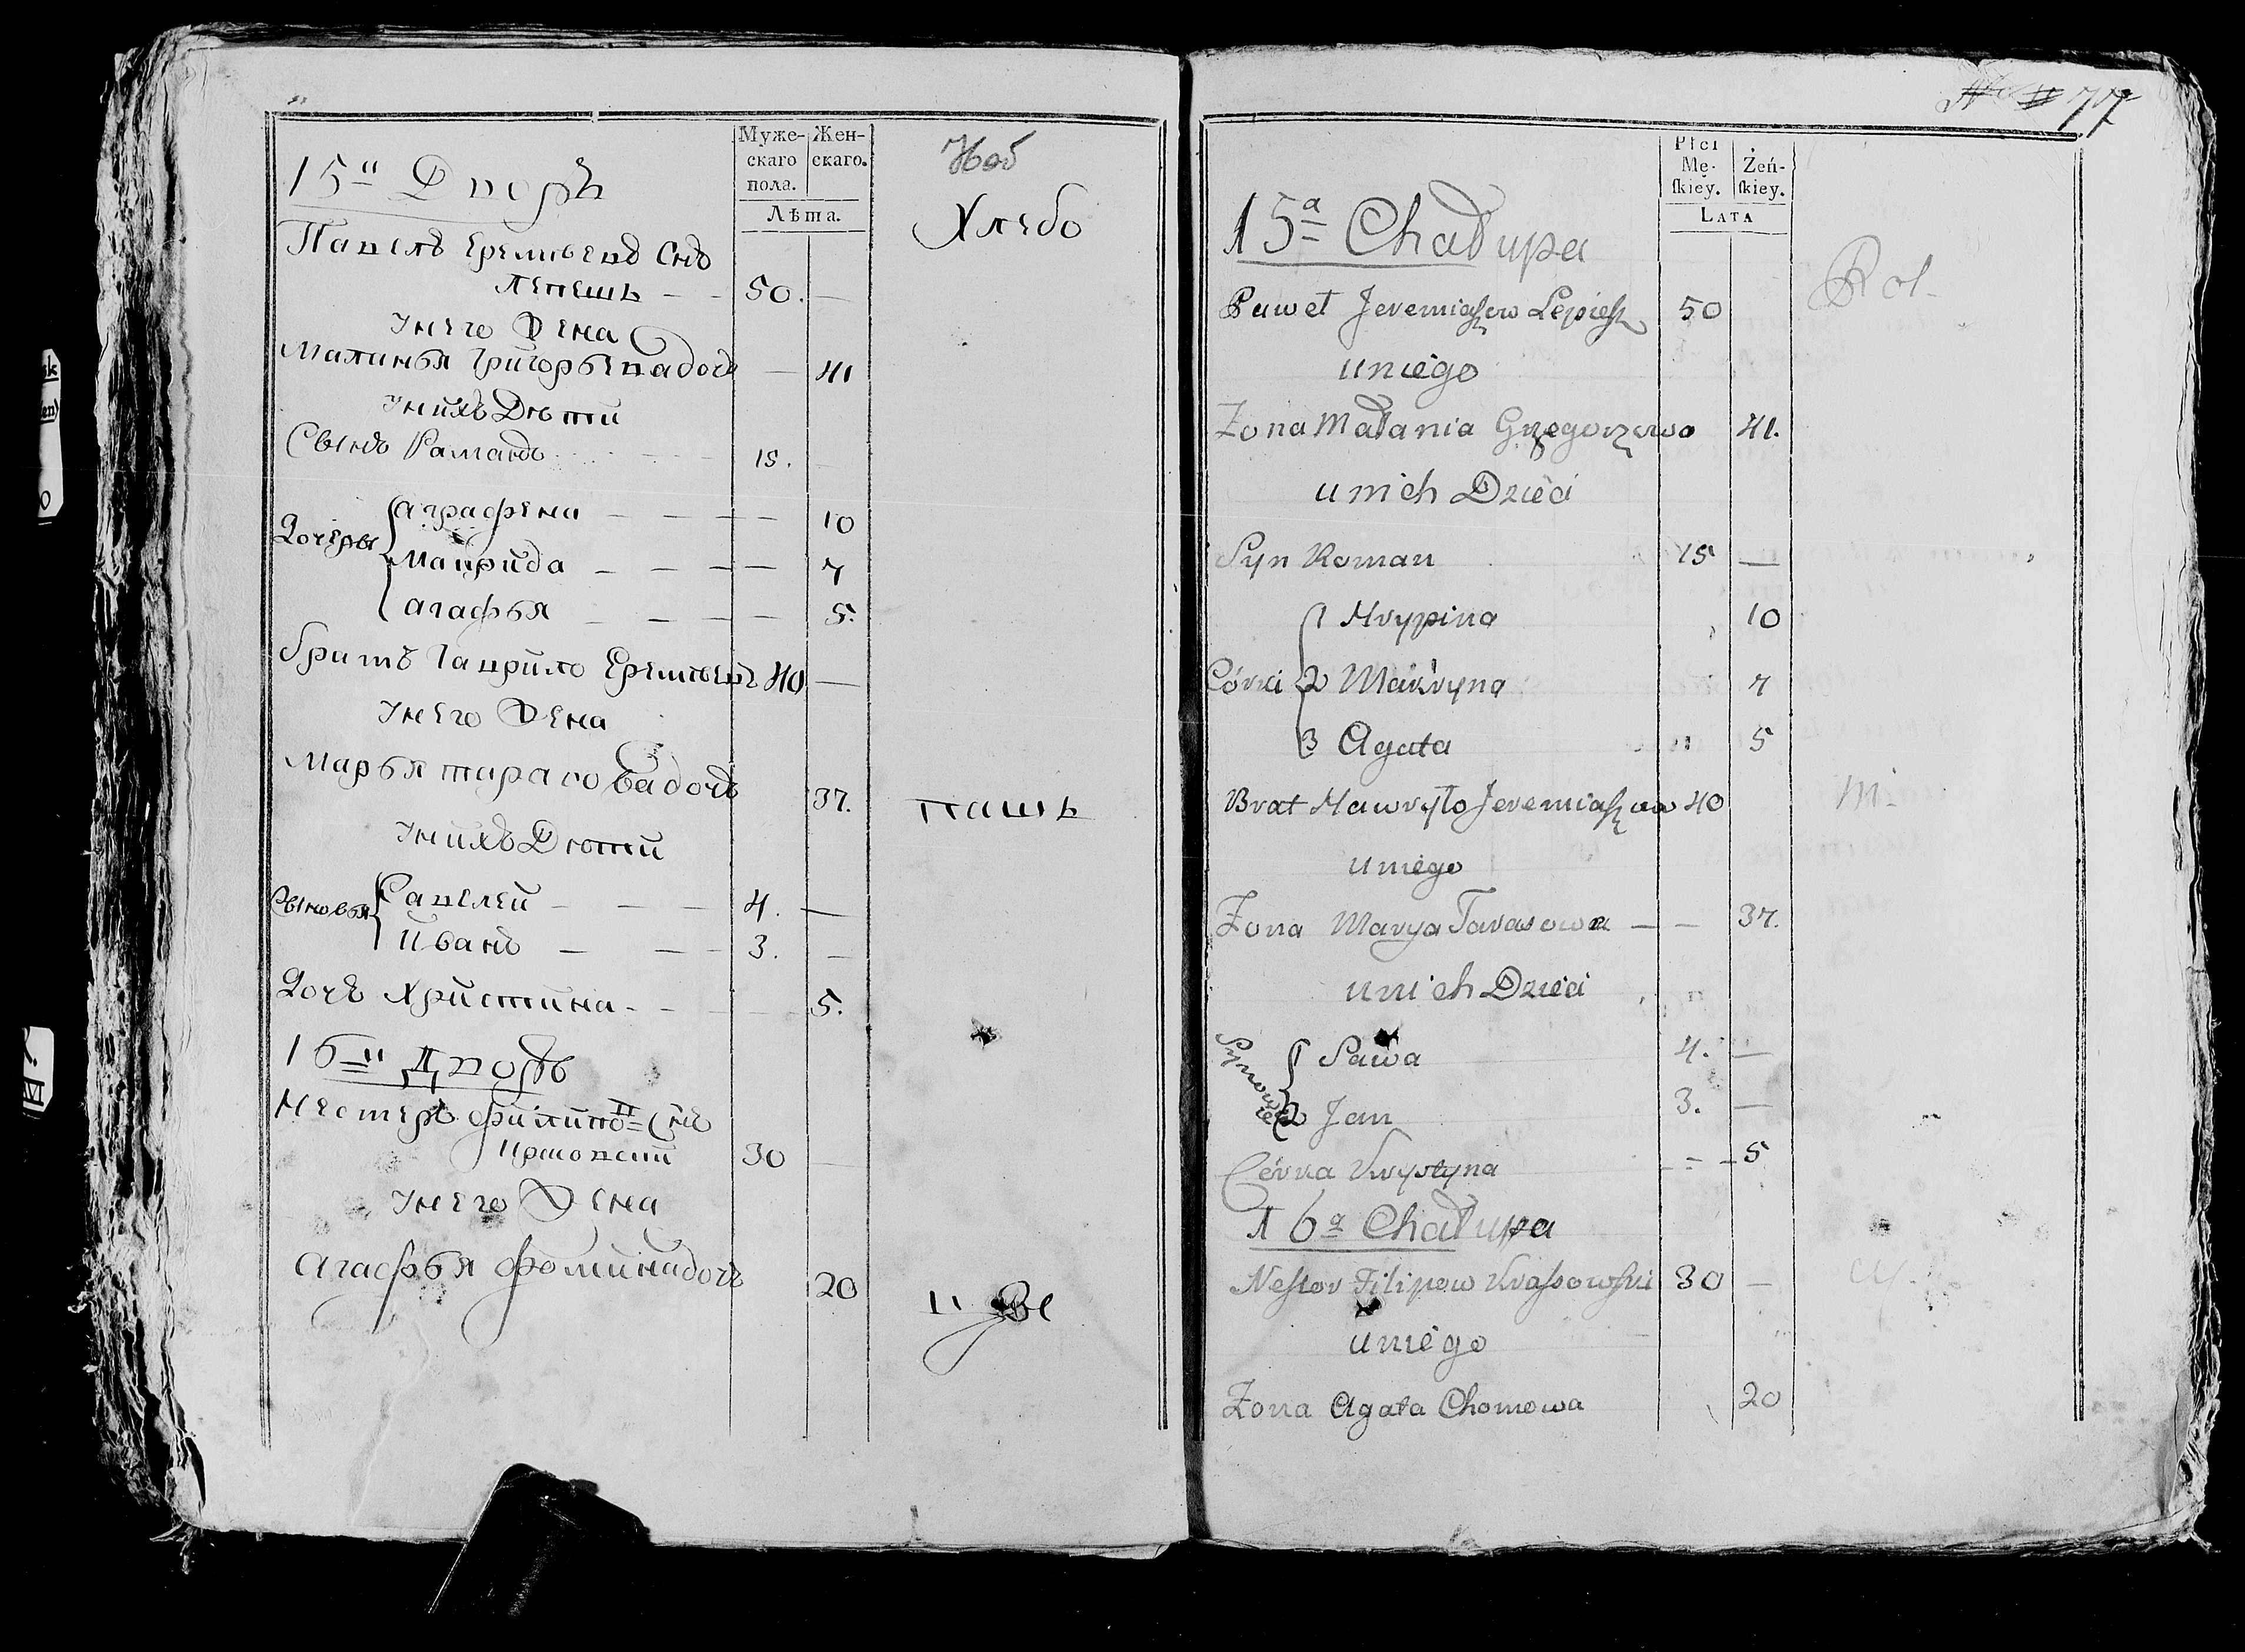 Муже-
скаго
пола.
Жен-
скаго.
Лѣта.
15й Дворъ
Хлебо
Павелъ Еремѣевъ Снъ
Лепешъ — — 50. —
Унего Жена
Маланья Григорьева дочь — 41
Унихъ Дѣти
Сынъ Раманъ 15. —
Дочеры
Аграфена — — — — 10
Маврида — — — — 7
Агафья — — — — 5.
братъ Гаврило Еремѣевъ 40 —
Унего Жена
Марья тарасова дочь 37.
пашъ
Унихъ Дѣти
Сыновья
Савелей — — — 4. —
Иванъ — — — 3. —
Дочь Христина - - 5.
16й Дворъ
Нестеръ филипо=въ Снъ
30 —
Унего Жена
Агафья фомина дочь 20
77
Płci
Mę-
ſkiey.
Żeń-
ſkiey.
LATA
15ª Chałupa
Rol-
Paweł Jeremiaſzow Lepieſz 50
u niégo
Żona Małania Grzegorzewa 41.
u nich Dzieci
Syn Roman 15 —
Córki
1 Hrypina 10
2 Mawryna 7
3 Agata 5
Brat Hawryło Jeremiaſzow 40
m-
u niégo
Żona Marya Tarasowa — — 37.
u nich Dzieci
Synowie
1 Sawa 4. —
2 Jan 3. —
Córka Krystyna - = - 5
16ª Chałupa
Neſtor Filipow Kraſsowſki 30 —
u niégo
Żona Agata Chomowa 20